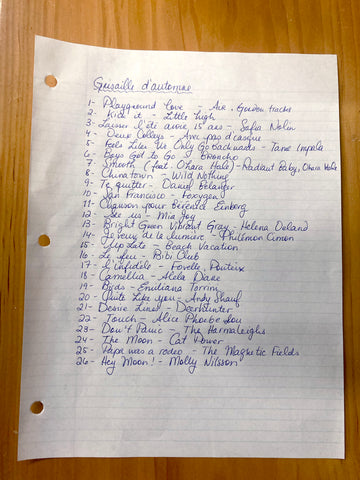 Grisaille d'automne
1- Playground love - Air, Gordon tracks
2- Kick it - Little high
3- Laisser l'été avoir 15 ans - Safia Nolin
4- Deux Colleys - Avec pas d'casque
5- Feels Like We Only Go backwards - Tame Impala
6- Boys Got to Go - Broncho
7- Smooth (feat. Ohara Hale) - Radiant Baby, Ohara Hale
8- Chinatown - Wild Nothing
9- Te quitter - Daniel Bélanger
10- San Francisco - Foxygen
11- Chanson pour Bérénice Einberg
12- See us - Mia Joy
13- Bright Green Vibrant Gray - Helena Deland
14- Je veux de la lumière - Philémon Cimon
15- Up Late - Beach Vacation
16- Le feu - Bibi Club
17- L'infidèle - Fovelle, Poirier
18- Camellia - Alela Diane
19- Birds - Emiliana Torrini
20- Quite Like you - Andy Shauf
21- Desire Lines - Deerhunter
22- Touch - Alice Phoebe Lou
23- Don't Panic - The Harmaleighs
24- The Moon - Cat Power
25- Papa was a rodeo - The Magnetic Fields
26- Hey Moon! - Molly Nilsson